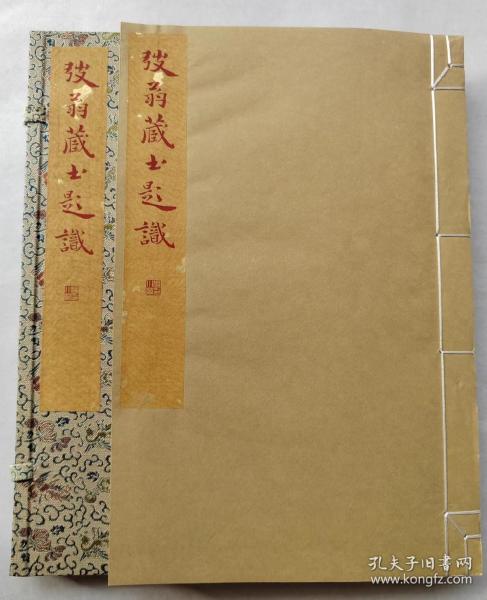 弢翁藏书题识
弢翁藏书题识
孔夫子旧书网
www.kongfz.com